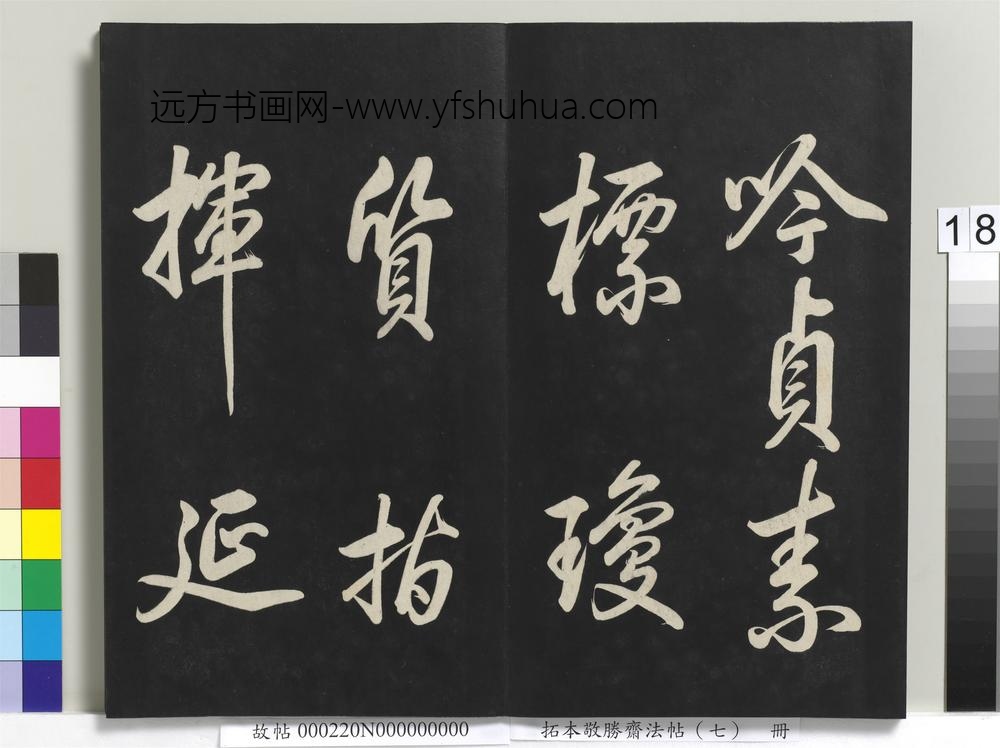 远方书画网-www.yfshuhua.com
吟貞素
標瓊
質指
揮延
18
故帖 000220N000000000
拓本敬勝齋法帖(七) 冊